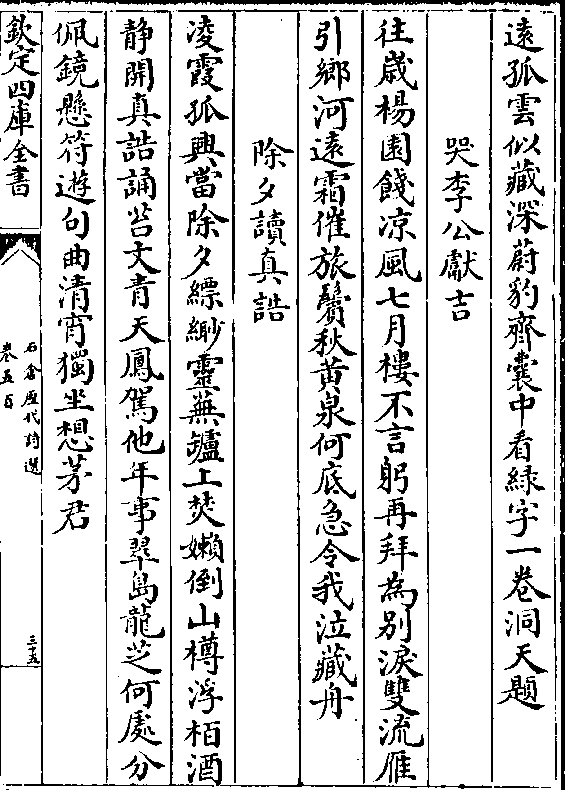 遠孤雲似藏深蔚豹齊囊中看緑字一卷洞天題
哭李公獻吉
往歳楊園餞凉風七月樓不言躬再拜為别淚雙流雁
引鄉河遠霜催旅鬢秋黄泉何底急令我泣藏舟
除夕讀真誥
凌霞孤興當除夕縹緲靈蕪罏上焚嬾倒山樽浮栢酒
静開真誥誦苔文青天鳳駕他年事翠島龍芝何處分
佩鏡懸符遊句曲清宵獨坐想茅君
欽定四庫全書
石倉歴代詩選
卷五百
三十五